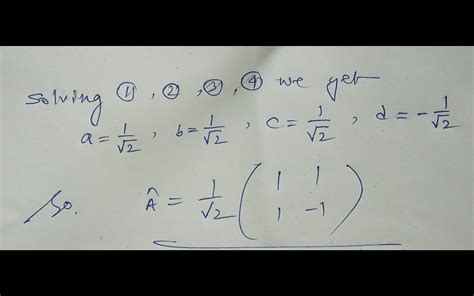 solving ①, ②, ③, ④ we get
a = 1/√2, b = 1/√2, c = 1/√2, d = -1/√2
So. Â = 1/√2 ( 1 1
1 -1 )